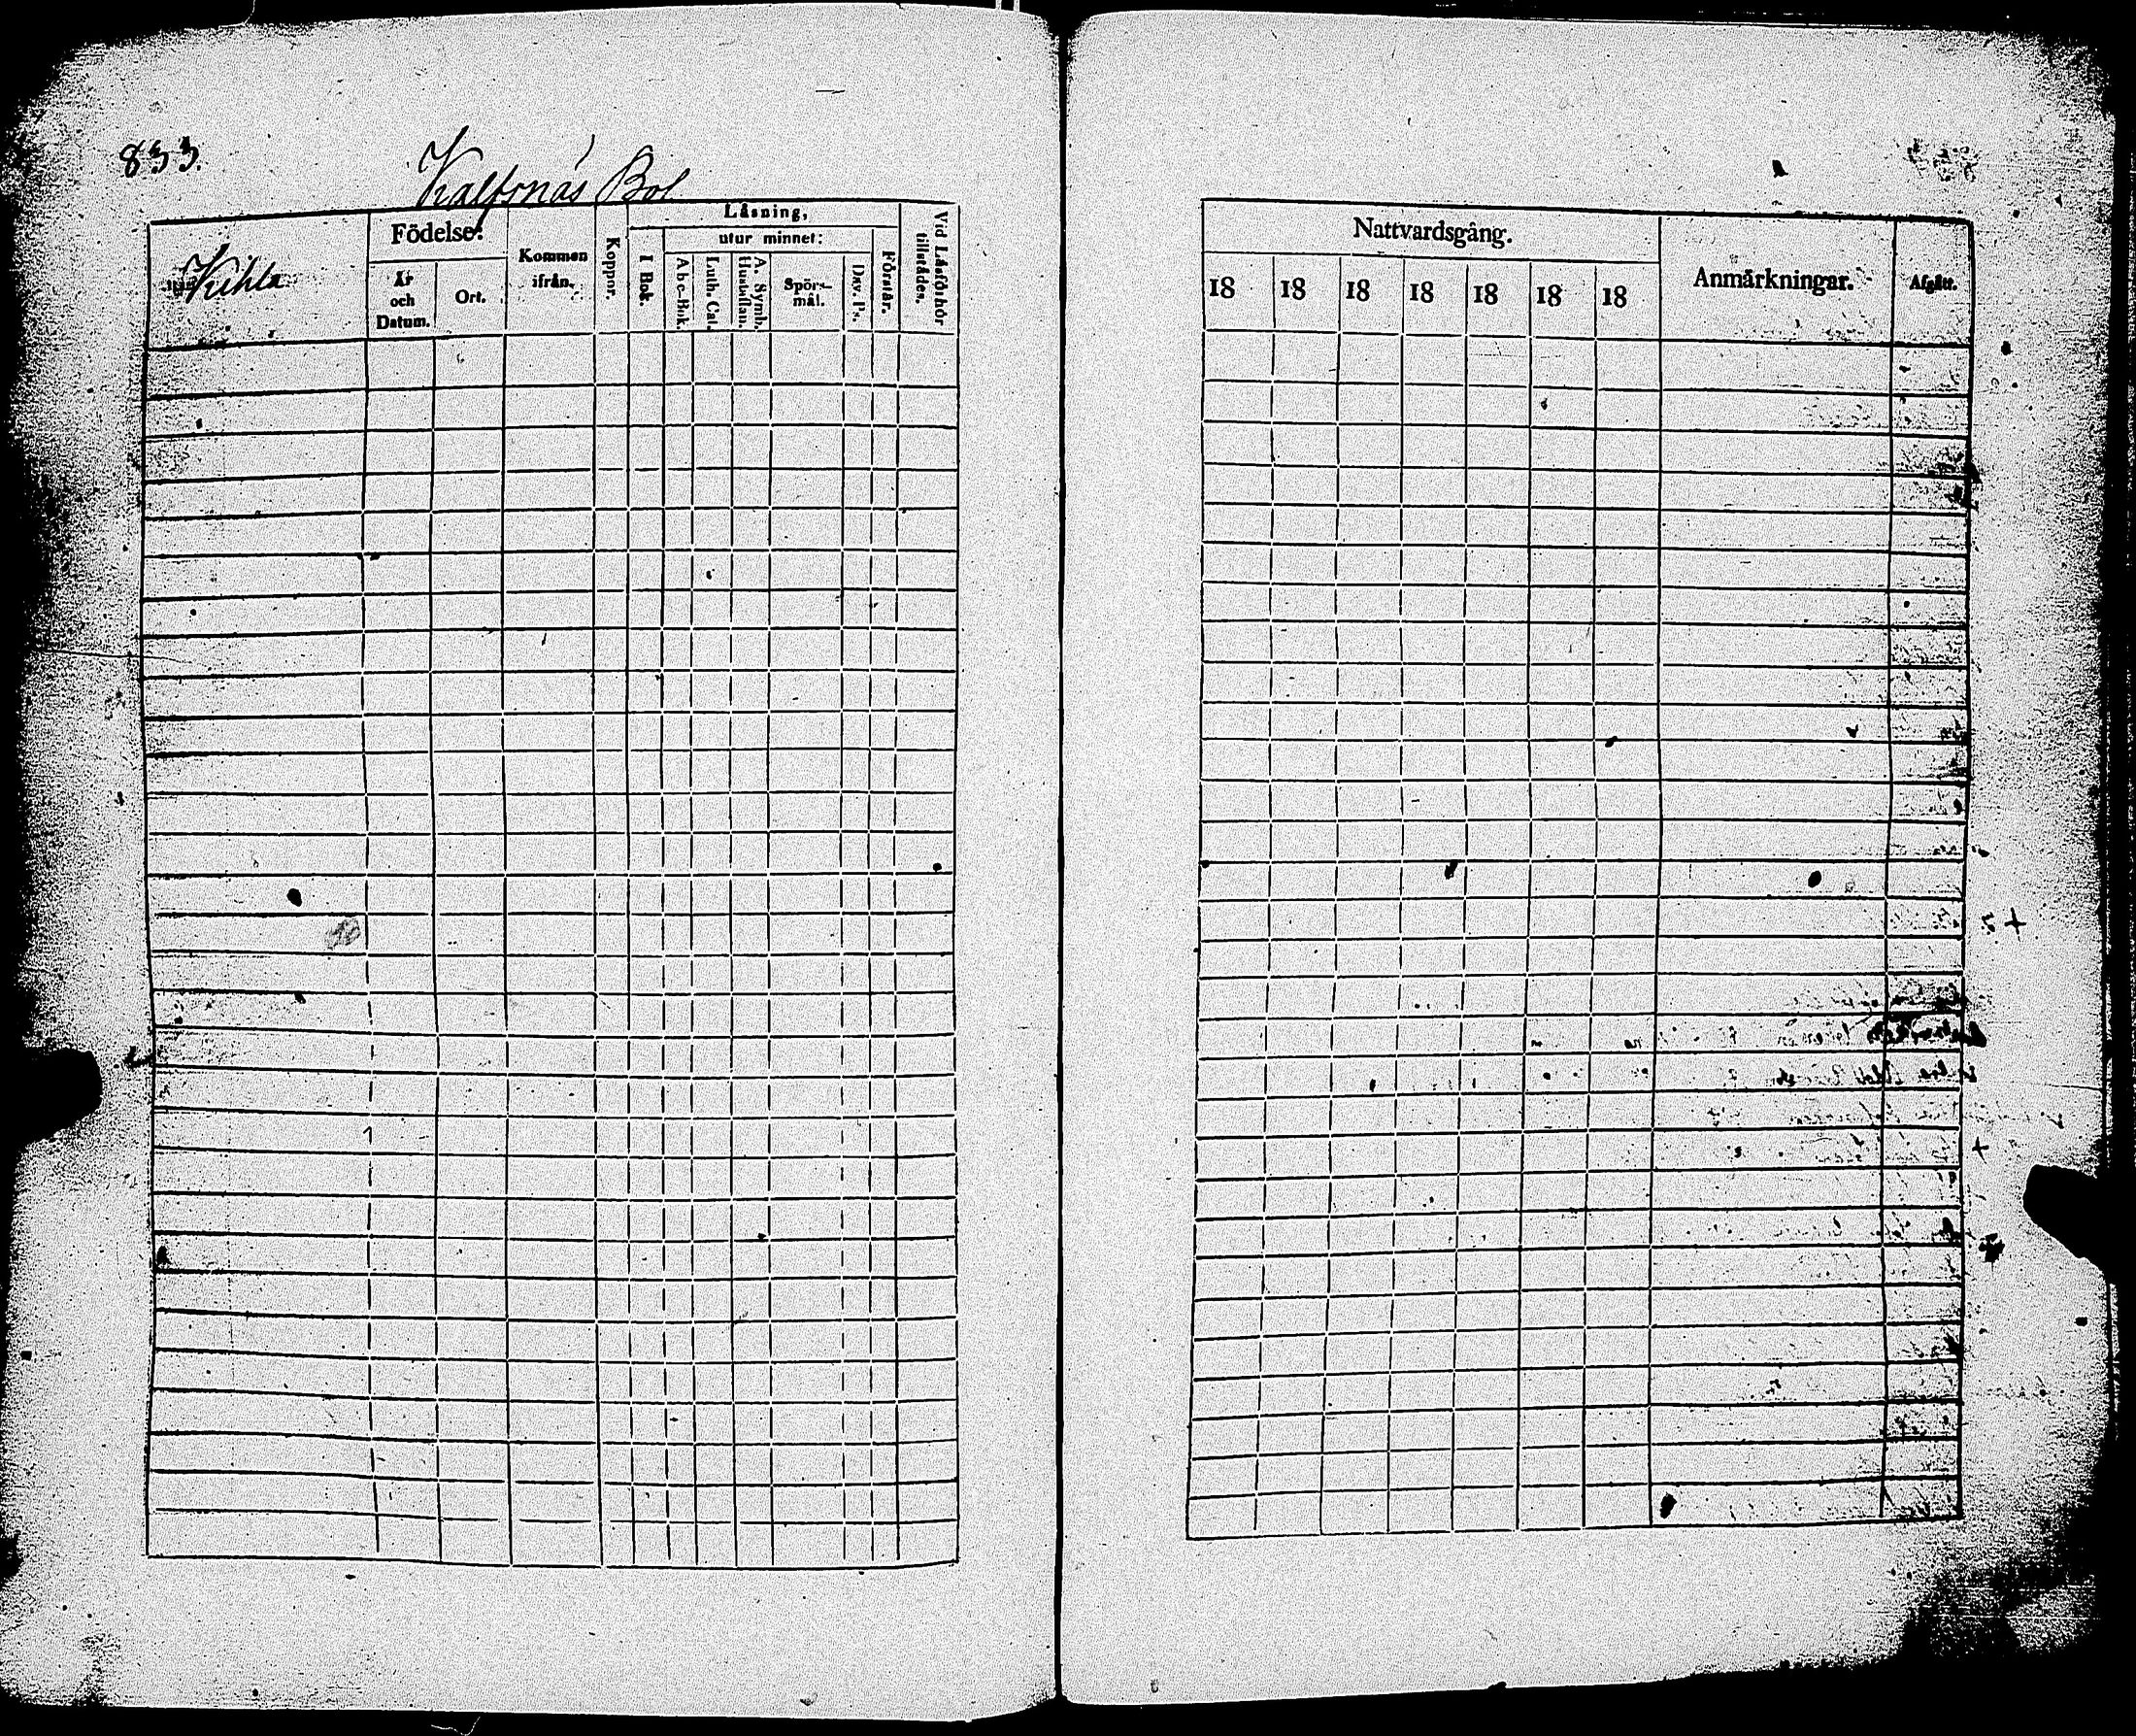 833.
Kalfsnäs Bol
Kihla
Födelse:
År
och
Datum.
Ort.
Kommen
ifrån.
Koppor.
Läsning,
I Bok.
utur minnet:
Abc-Bok.
Luth. Cat.
A. Symb.
Hustaflan.
Spörs-
mål.
Dav. Ps.
Förstår.
Vid Läsförhör
tillstädes.
Nattvardsgång.
18 18 18 18 18 18 18
Anmärkningar.
Afgått.